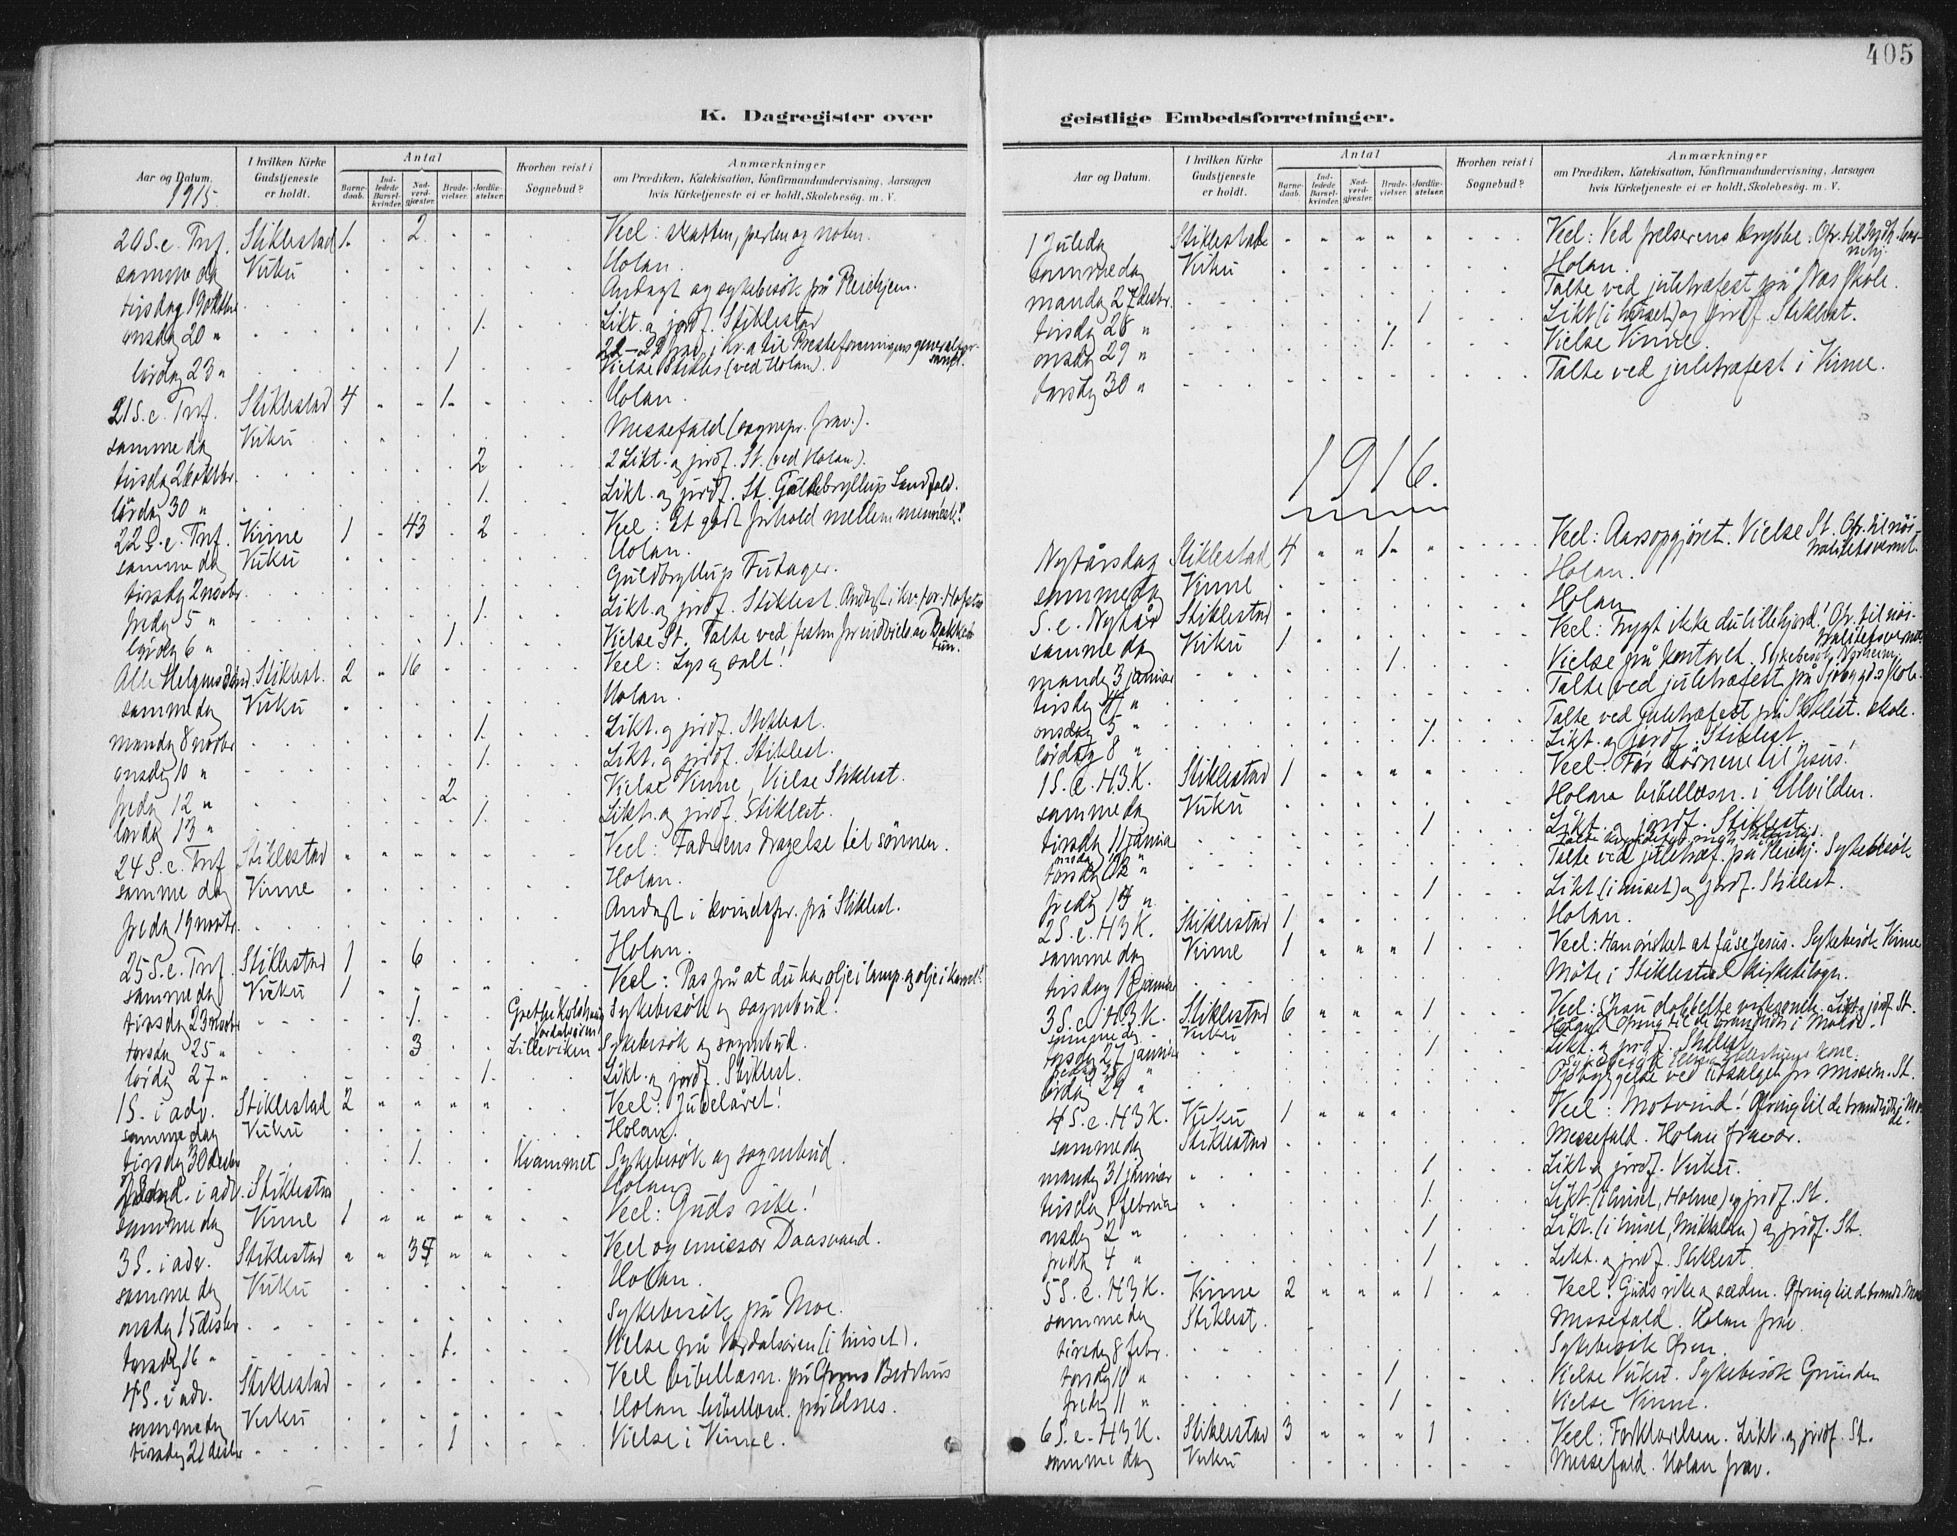 405
K. Dagregister over
Aar og Datum.
I hvilken Kirke Gudstjeneste er holdt.
Antal
Barnedaab.
Indledede Barselkvinder.
Nadverdgjæster.
Brudevielser.
Jordfæstelser.
Hvorhen reist i Sognebud?
Anmærkninger
om Prædiken, Katekisation, Konfirmandundervisning, Aarsagen
hvis Kirketjeneste ei er holdt, Skolebesøg. m. V.
1915.
20 S. e. Trf. Stiklestad 1 2 Veel: skatten, perlen og noten.
samme dag Vuku Holan.
tirsdag 19 oktbr. Andagt og sykebesök på Pleiehjem.
onsdag 20 " 1 Likt. og jordf. Stiklestad
lørdag 23 " 1 Vielse (ved Holan).
21 S. e. Trf. Stiklestad 4 1 Holan.
samme dag Vuku Messefald (sognepr. frav.).
tirsdag 26 oktbr. 2 2 Likt. og jordf. St. (ved Holan).
lørdag 30 " 1 Likt. og jordf. St. Guldbryllup Sandfald.
22 S. e. Trf. Vinne 1 43 2 Veel: Et godt forhold mellem mennesk.!
samme dag Vuku Holan.
tirsdag 2 novbr. Guldbryllup Futager.
fredag 5 " 1 Likt. og jordf. Stiklest. Andagt i kv.for. Hofstad
lørdag 6 " 1 Vielse St. Talte ved festen for indvielse av Bakketun.
Alle Helgens Stiklest. 2 16 Veel: Lys og salt!
samme dag Vuku Holan.
mandag 8 novbr. 1 Likt. og jordf. Stiklest.
onsdag 10 " 1 Likt. og jordf. Stiklest.
fredag 12 " 2 Vielse Vinne, Vielse Stiklest.
lørdag 13 " 1 Likt. og jordf. Stiklest.
24 S. e. Trf. Stiklestad Veel: Faderens dragelse til sönnen.
samme dag Vinne Holan.
fredag 19 novbr. Andagt i kvindefor. på Stiklest.
25 S. e. Trf. Stiklestad 1 6 Holan.
samme dag Vuku 1 Veel: Pas på at du har olje i lamp. og olje i kand.!
tirsdag 23 novbr. 1 Grethe Kolshaug Verdalsøren Sykebesök og sognebud.
torsdag 25 " 3 Lilleviken Sykebesök og sognebud.
lørdag 27 " 1 Likt. og jordf. Stiklest.
1 S. i adv. Stiklestad 2 Veel: Jubelåret!
samme dag Vuku Holan.
tirsdag 30 1 Kvammet Sykebesök og sognebud.
i adv. Stiklestad Holan
samme dag Vinne 1 Veel: Guds rike!
3 S. i adv. Stiklestad 34 Veel og emissær Daasvand.
samme dag Vuku Holan.
onsdag 15 desbr. Sykebesök på Moe.
torsdag 16 " 1 Vielse på Verdalsören (i huset).
4 S. i adv. Stiklestad Veel bibellæsn. på Bedehus
samme dag Vuku Holan bibellæsn. på Elnes.
tirsdag 21 desbr. 1 Vielse i Vinne.
geistlige Embedsforretninger.
Aar og Datum.
I hvilken Kirke Gudstjeneste er holdt.
Antal
Barnedaab.
Indledede Barselkvinder.
Nadverdgjæster.
Brudevielser.
Jordfæstelser.
Hvorhen reist i Sognebud?
Anmærkninger
om Prædiken, Katekisation, Konfirmandundervisning, Aarsagen
hvis Kirketjeneste ei er holdt, Skolebesøg. m. V.
1 Juledag Stiklestad Veel: Ved frelserens krybbe. Ofr. til
samme dag Vuku Holan.
mandag 27 desbr. Talte ved juletræfest på Næs skole.
tirsdag 28 " 1 Likt (i huset) og jordf. Stiklest.
onsdag 29 " 1 Vielse Vinne.
torsdag 30 " Talte ved juletræfest i Vinne.
1916.
Nytårsdag Stiklestad 4 1 Veel: Aarsopgjöret. Vielse St. Ofr. til nöitralitetsvernet.
samme dag Vinne Holan.
S. e. Nytår Stiklestad Holan
samme dag Vuku 1 Veel: Frygt ikke du lille hjord! Ofr. til nöitralitetsvernet
mandag 3 januar 1 Vielse på kontoret. Sykebesök
tirsdag 4 " Talte ved juletræfest på Sjöbygda skole.
onsdag 5 " Talte ved juletræfest på Stiklest. skole.
lørdag 8 " 1 Likt. og jordf. Stiklest.
1 S. e. H3K. Stiklestad 1 Veel: Før börnene til Jesus!
samme dag Vuku Holan bibellæsn. i Ulvilden.
tirsdag 11 januar 1 Likt. og jordf. Stiklest.
torsdag Talte ved juletræf. på Pleiehj. Sykebesök
fredag 14 " 1 Likt (i huset) og jordf. Stiklest.
2 S. e. H3K. Stiklestad 1 Holan.
samme dag Vinne 1 1 Veel: Han ønsket at få se Jesus. Sykebesök Vinne
tirsdag 18 januar Möte i Stiklestad kirketilsyn.
3 S. e. H3K. Stiklestad 6 1 Veel: dobbelte virksomh. Likt. og jordf. St.
samme dag Vuku Holan. Ofring til de brandlidte i Molde.
torsdag 27 januar 1 Likt. og jordf. Stiklest.
lørdag 29 " Opbyggelse ved utsalget for missionen. St.
4 S. e. H3K. Vuku 1 Veel: Motvind! Ofring til de brandlidte i Molde.
samme dag Stiklestad Messefald. Holan fravær.
mandag 31 januar 1 Likt. og jordf. Vuku.
tirsdag 1 februar 1 Likt. (i huset, Holme) og jordf. St.
onsdag 2 " 1 Likt. (i huset, Mikkelsen) og jordf. St.
fredag 4 " 1 Likt. og jordf. Stiklest.
5 S. e. H3K. Vinne 2 1 Veel: Guds rike og sæden. Ofring til d. brandl. Molde
samme dag Stiklest. Messefald. Holan frav.
tirsdag 8 febr. Sykebesök Ören.
torsdag 10 " 1 Vielse Vuku. Sykebesök Grunden
fredag 11 " 1 Vielse Vinne.
6 S. e. H3K. Stiklestad 3 1 Veel: Forklarelsen. Likt. og jordf. St.
samme dag Vuku Messefald. Holan frav.